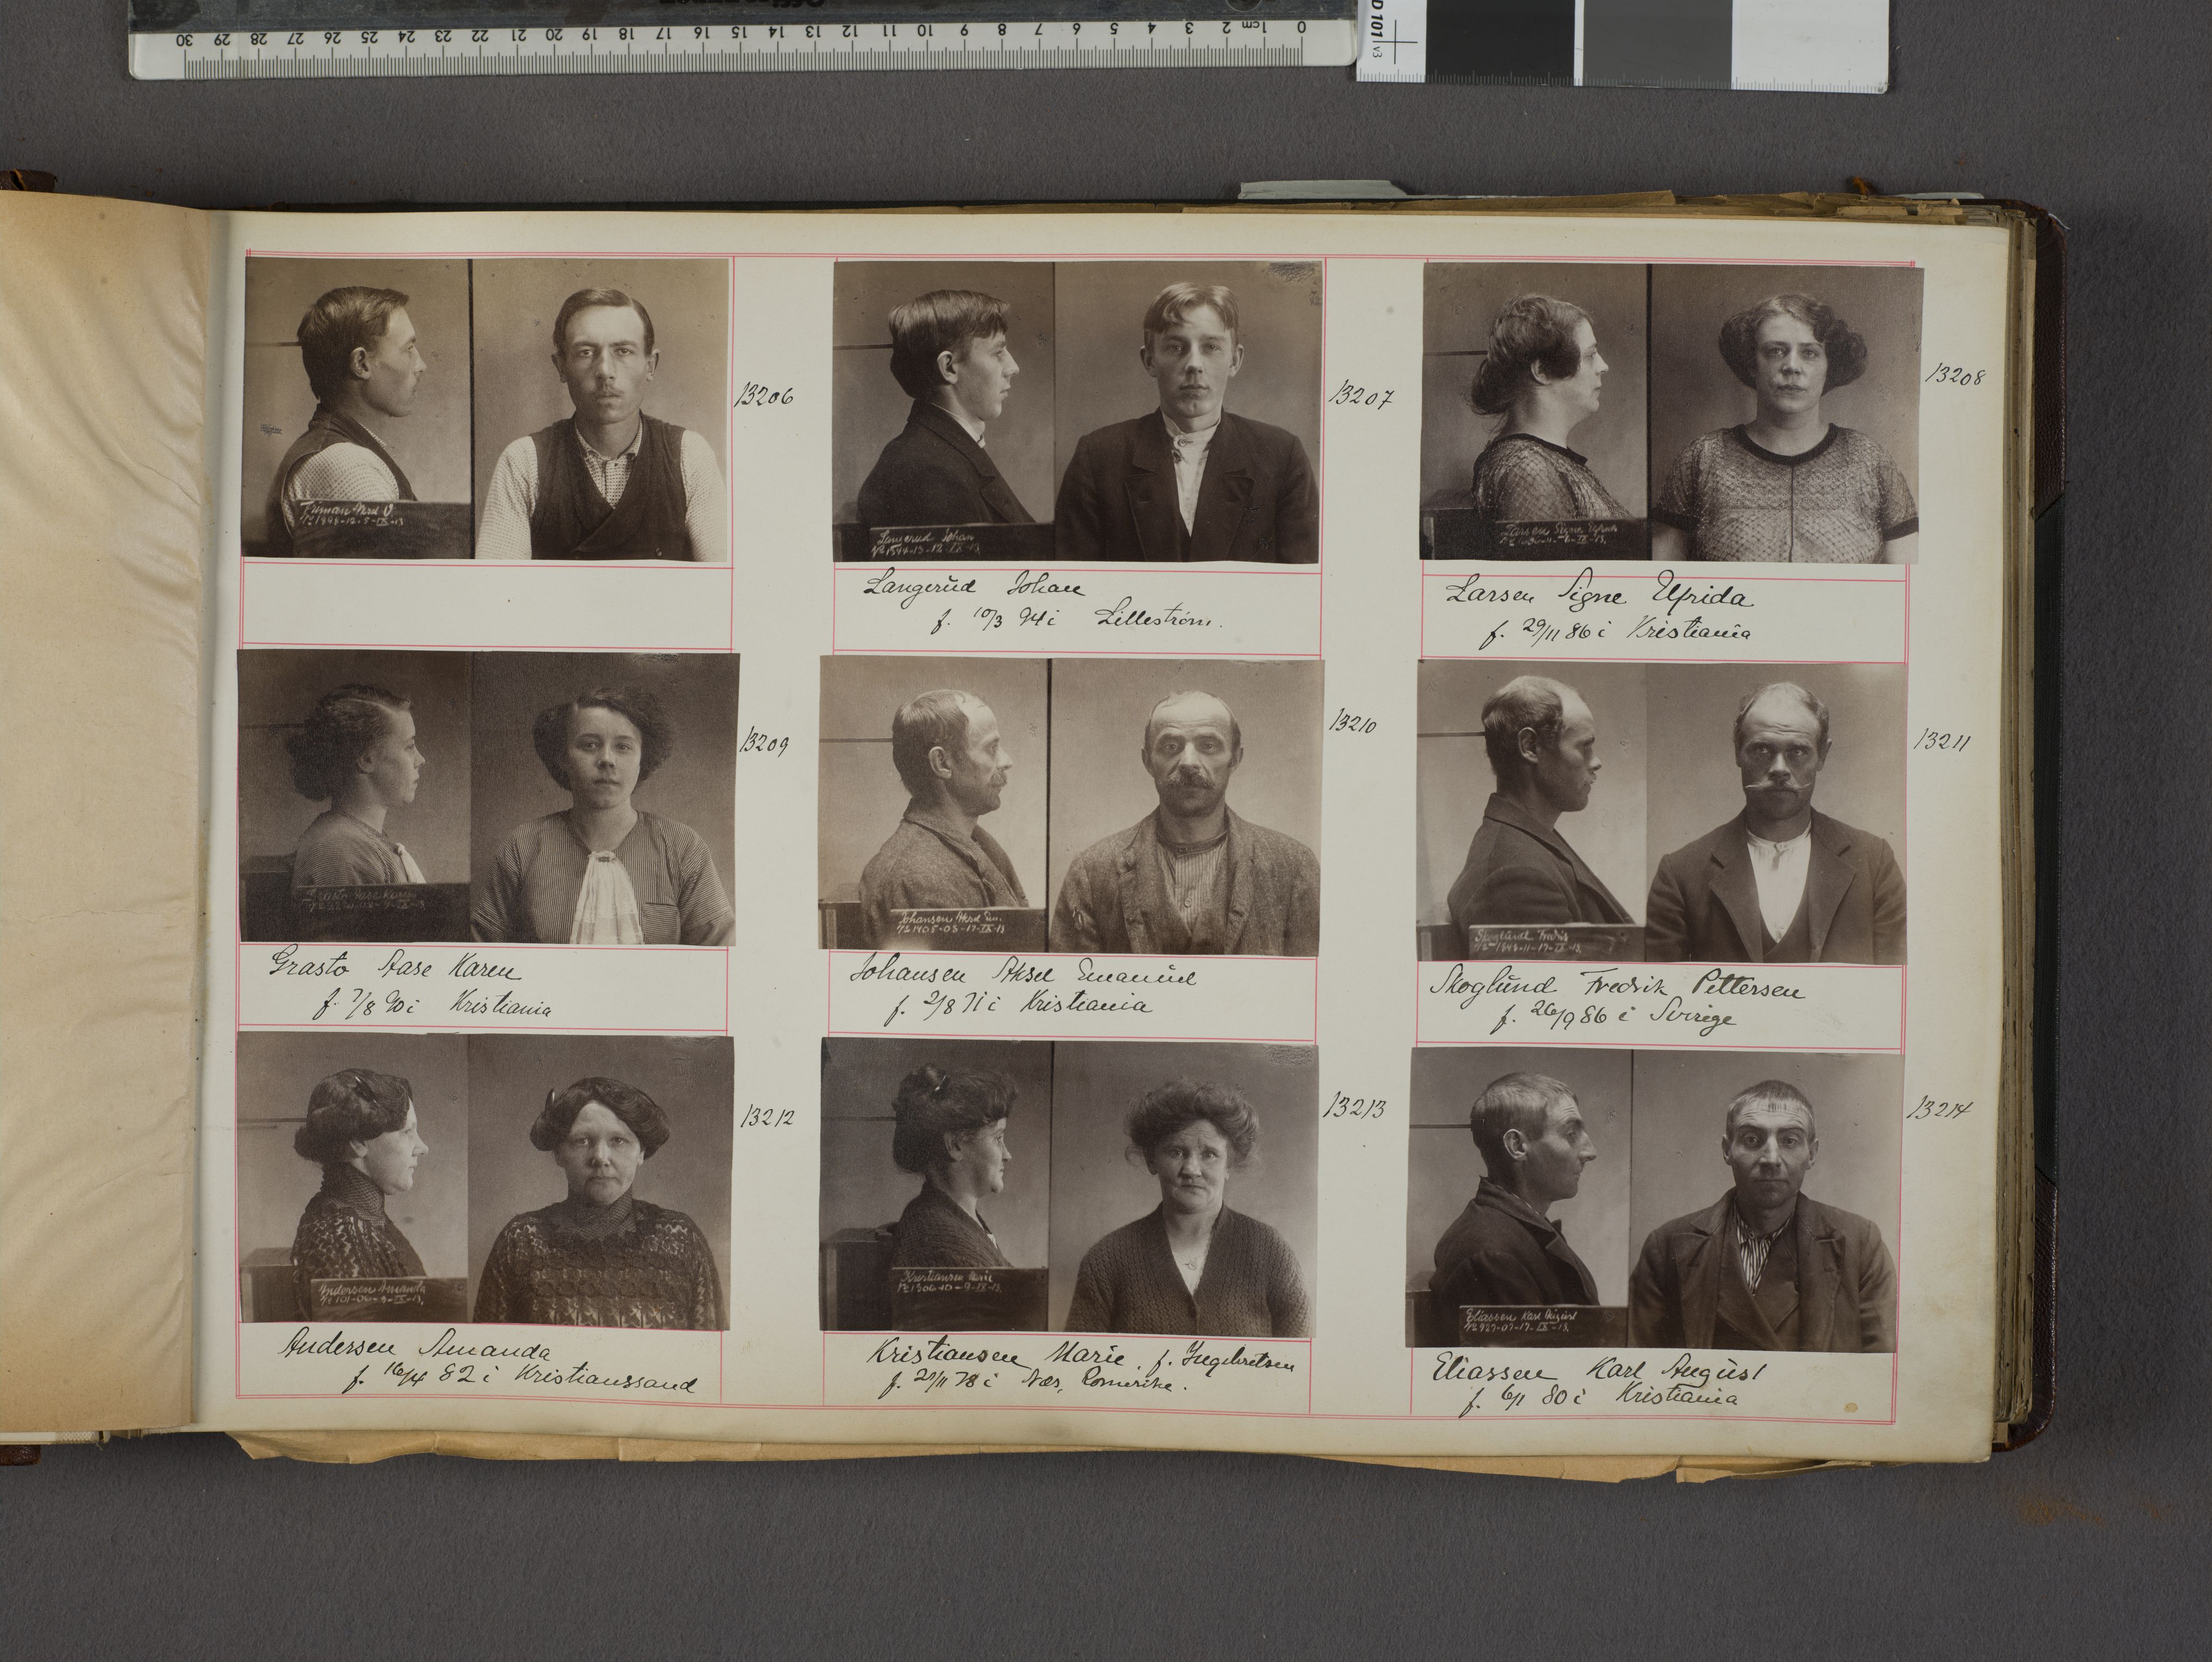 0 1cm 2 3 4 5 6 7 8 9 10 11 12 13 14 15 16 17 18 19 20 21 22 23 24 25 26 27 28 29 30
D 101 v3
13206
13207
13208
Langerud Johan
Nº 1544-13-12-IX-13
Larsen Signe Elfrida
Langerud Johan
f. 10/3 94 i Lilleström.
Larsen Signe Elfrida
f. 29/11 86 i Kristiania
13209
13210
13211
Grasto Aase Karen
Johansen Aksel Em.
Nº 1405-03-17-IX-13
Skoglund Fredrik
Nº 1848-11-17-IX-13
Grasto Aase Karen
f. 7/8 90 i Kristiania
Johansen Aksel Emanuel
f. 2/8 71 i Kristiania
Skoglund Fredrik Pettersen
f. 26/9 86 i Sverige
13212
13213
13214
Andersen Amanda
Nº 101-06-9-IX-13
Kristiansen Marie
Nº 1306-10-9-IX-13
Eliassen Karl August
Nº 927-07-17-IX-13
Andersen Amanda
f. 16/4 82 i Kristianssand
Kristiansen Marie. f. Ingebretsen
f. 29/11 78 i Nes, Romerike.
Eliassen Karl August
f. 6/1 80 i Kristiania